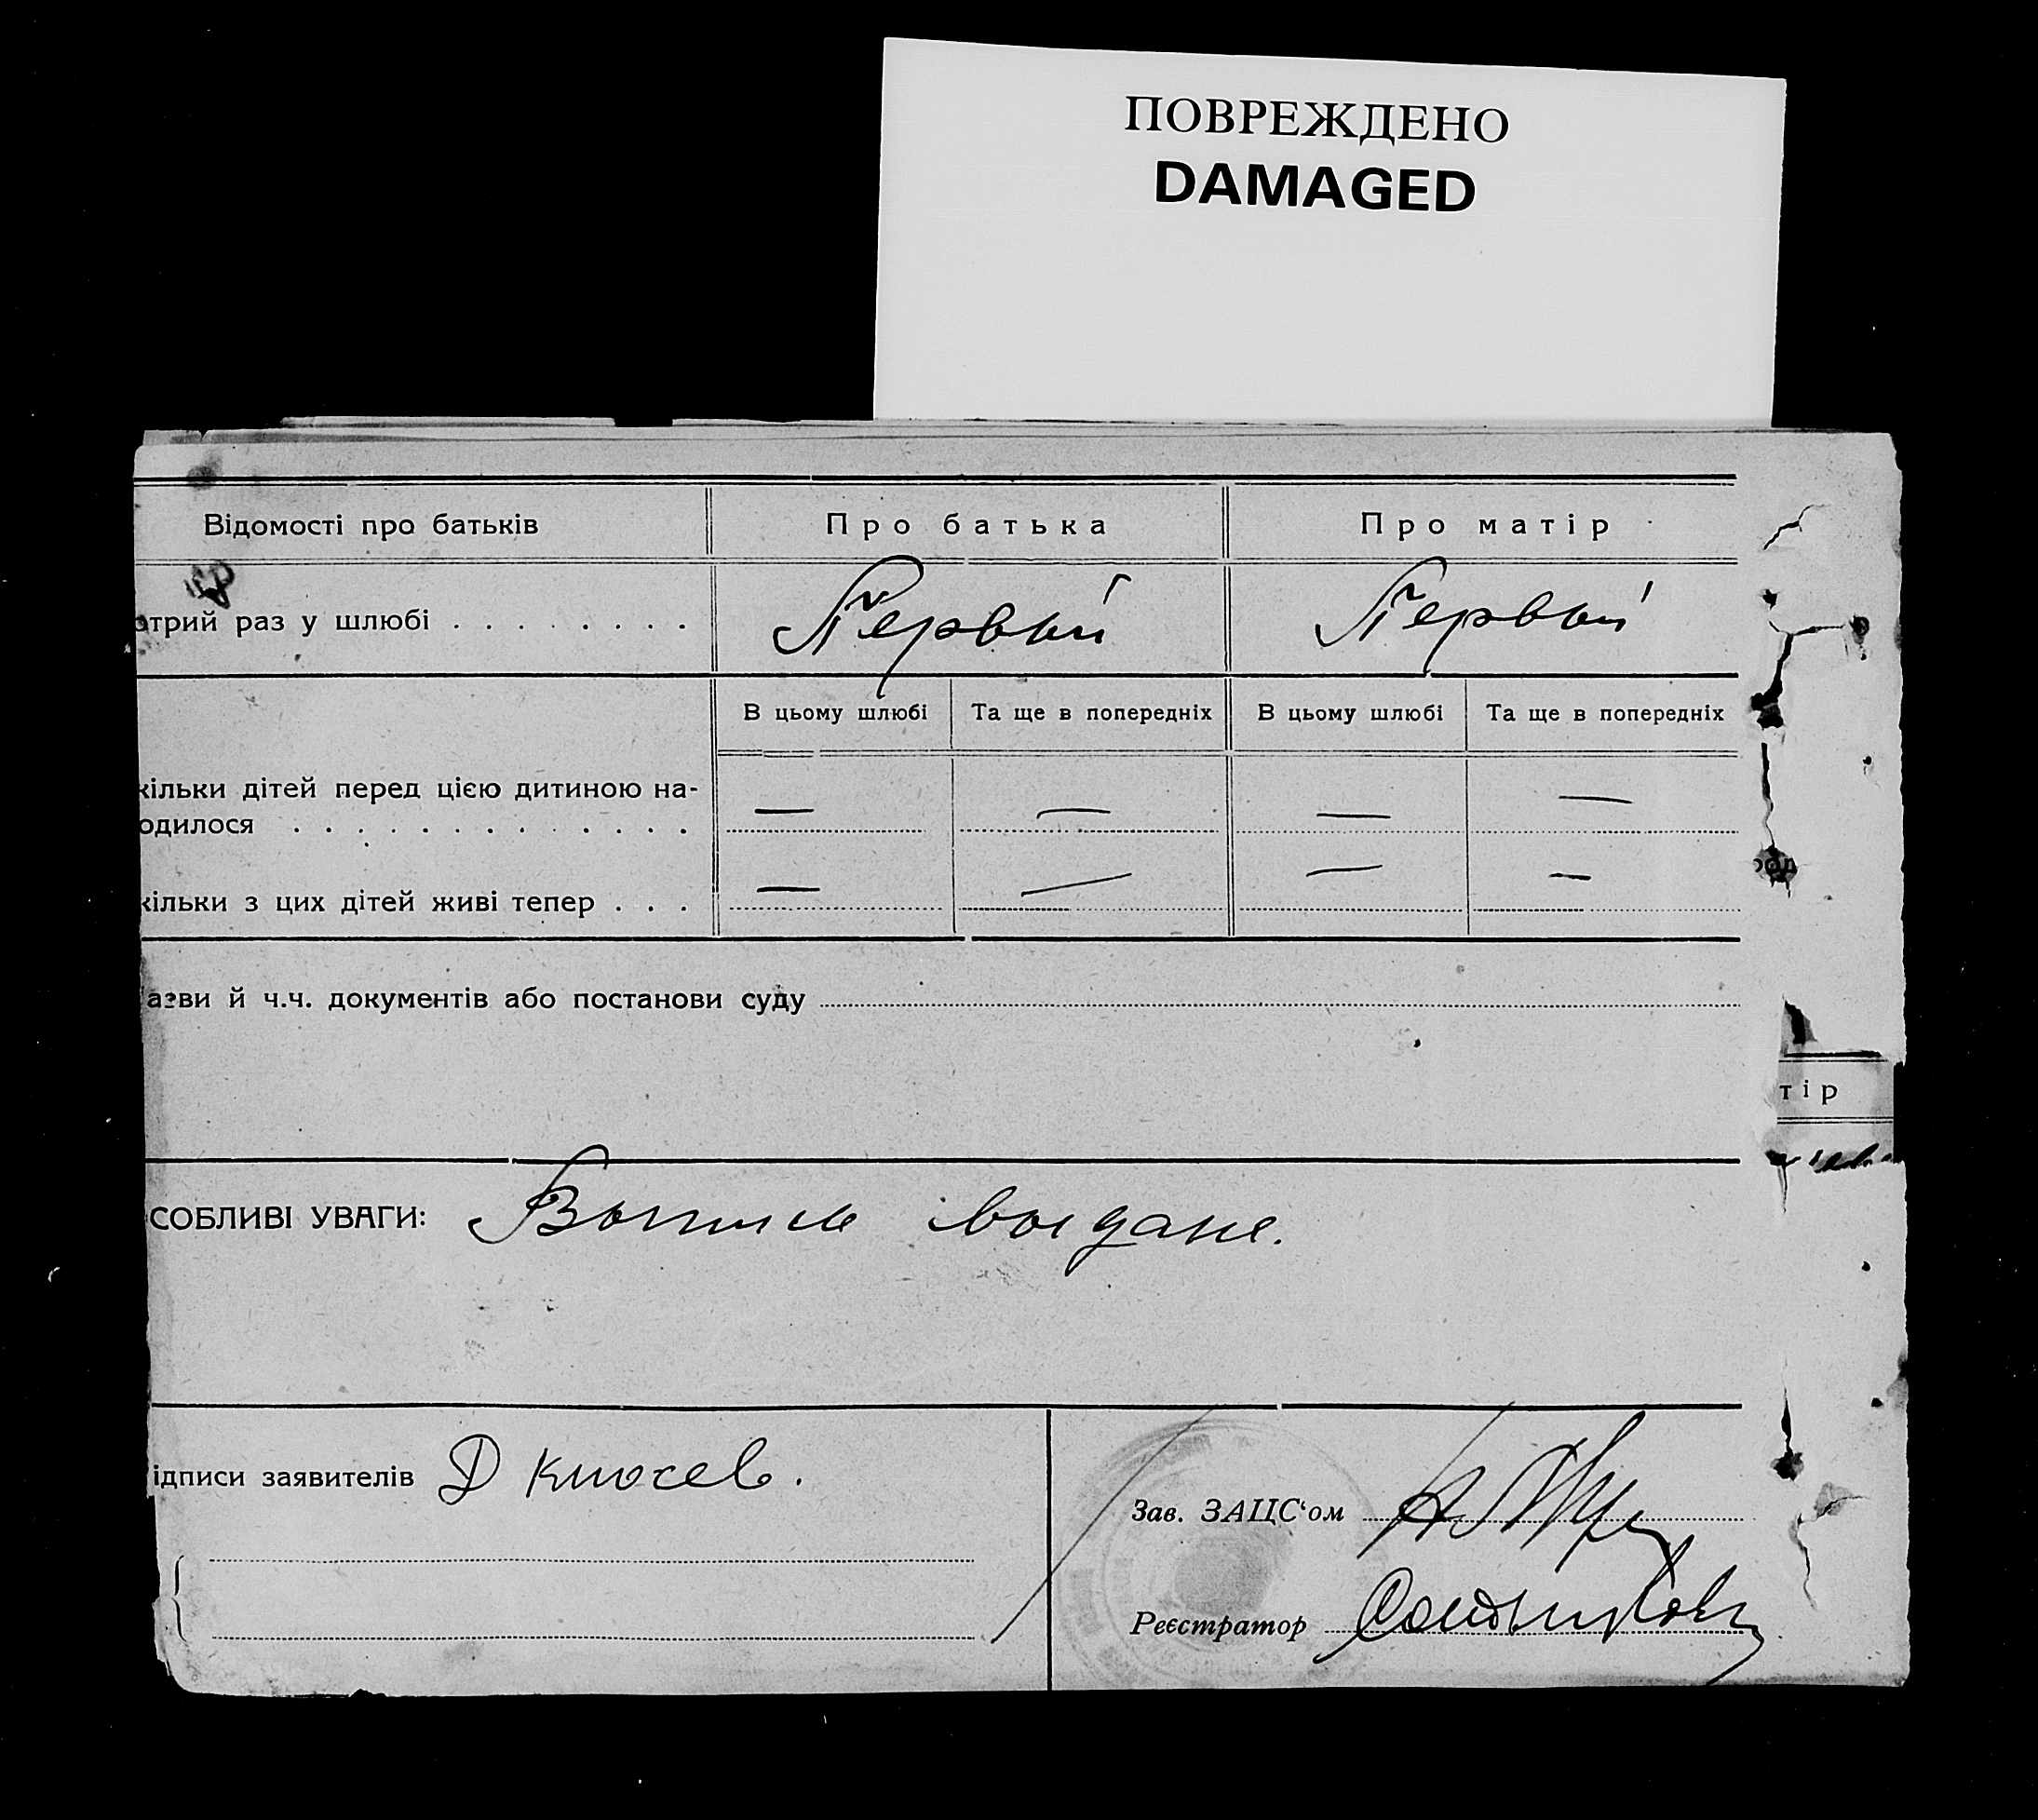 ПОВРЕЖДЕНО
DAMAGED
Відомості про батьків
Про батька
Про матір
отрий раз у шлюбі . . . . . . . .
Первый
Первый
В цьому шлюбі
Та ще в попередніх
В цьому шлюбі
Та ще в попередніх
кільки дітей перед цією дитиною на-
одилося . . . . . . . . . . . . .
— — — —
кільки з цих дітей живі тепер . . .
— — — —
азви й ч.ч. документів або постанови суду
тір
СОБЛИВІ УВАГИ: Выпись выдане.
ідписи заявителів Д Клюсев.
Зав. ЗАЦС‘ом
Реєстратор